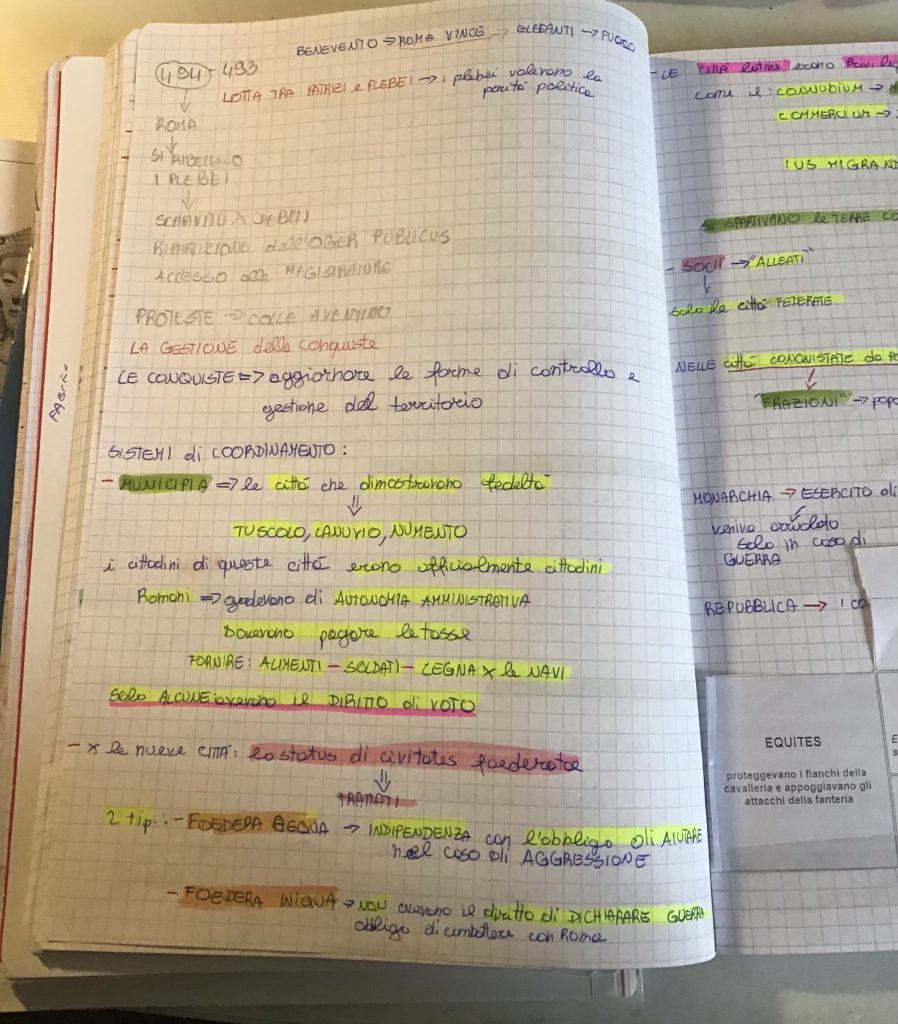 BENEVENTO → ROMA VINCE → ELEFANTI → FUOCO
494 - 493
LOTTA TRA PATRIZI e PLEBEI → i plebei volevano la
parità politica
ROMA
SI RIBELLANO
I PLEBEI
SCHIAVITÙ X DEBITI
RIPARTIZIONE dell'OGER PUBLICUS
ACCESSO alle MAGISTRATURE
PROTESTE → COLLE AVENTINO
LA GESTIONE delle conquiste
LE CONQUISTE => aggiornare le forme di controllo e
gestione del territorio
SISTEMI di COORDINAMENTO:
- MUNICIPIA => le città che dimostravano fedeltà
TUSCOLO, LANUVIO, NUMENTO
i cittadini di queste città erano ufficialmente cittadini
Romani => godevano di AUTONOMIA AMMINISTRATIVA
Dovevano pagare le tasse
FORNIRE: ALIMENTI - SOLDATI - LEGNA X le NAVI
SOLO ALCUNE avevano il DIRITTO di VOTO
- X le nuove CITTÀ: lo status di civitates foederatae
TRATTATI
2 tip.: - FOEDERA AEQUA → INDIPENDENZA con l'obbligo di AIUTARE
nel caso di AGGRESSIONE
- FOEDERA INIQUA → NON avevano il diritto di DICHIARARE GUERRA
obbligo di combattere con Roma
- LE CITTÀ latine erano
come il: CONNUBIUM →
COMMERCIUM →
IUS MIGRAN
SI SPARTIVANO le TERRE
- SOCII → "ALLEATI"
solo le città FEDERATE
NELLE città CONQUISTATE da
"FRAZIONI" →
MONARCHIA → ESERCITO di
veniva
solo in caso di
GUERRA
REPUBBLICA →
EQUITES
proteggevano i fianchi della
cavalleria e appoggiavano gli
attacchi della fanteria